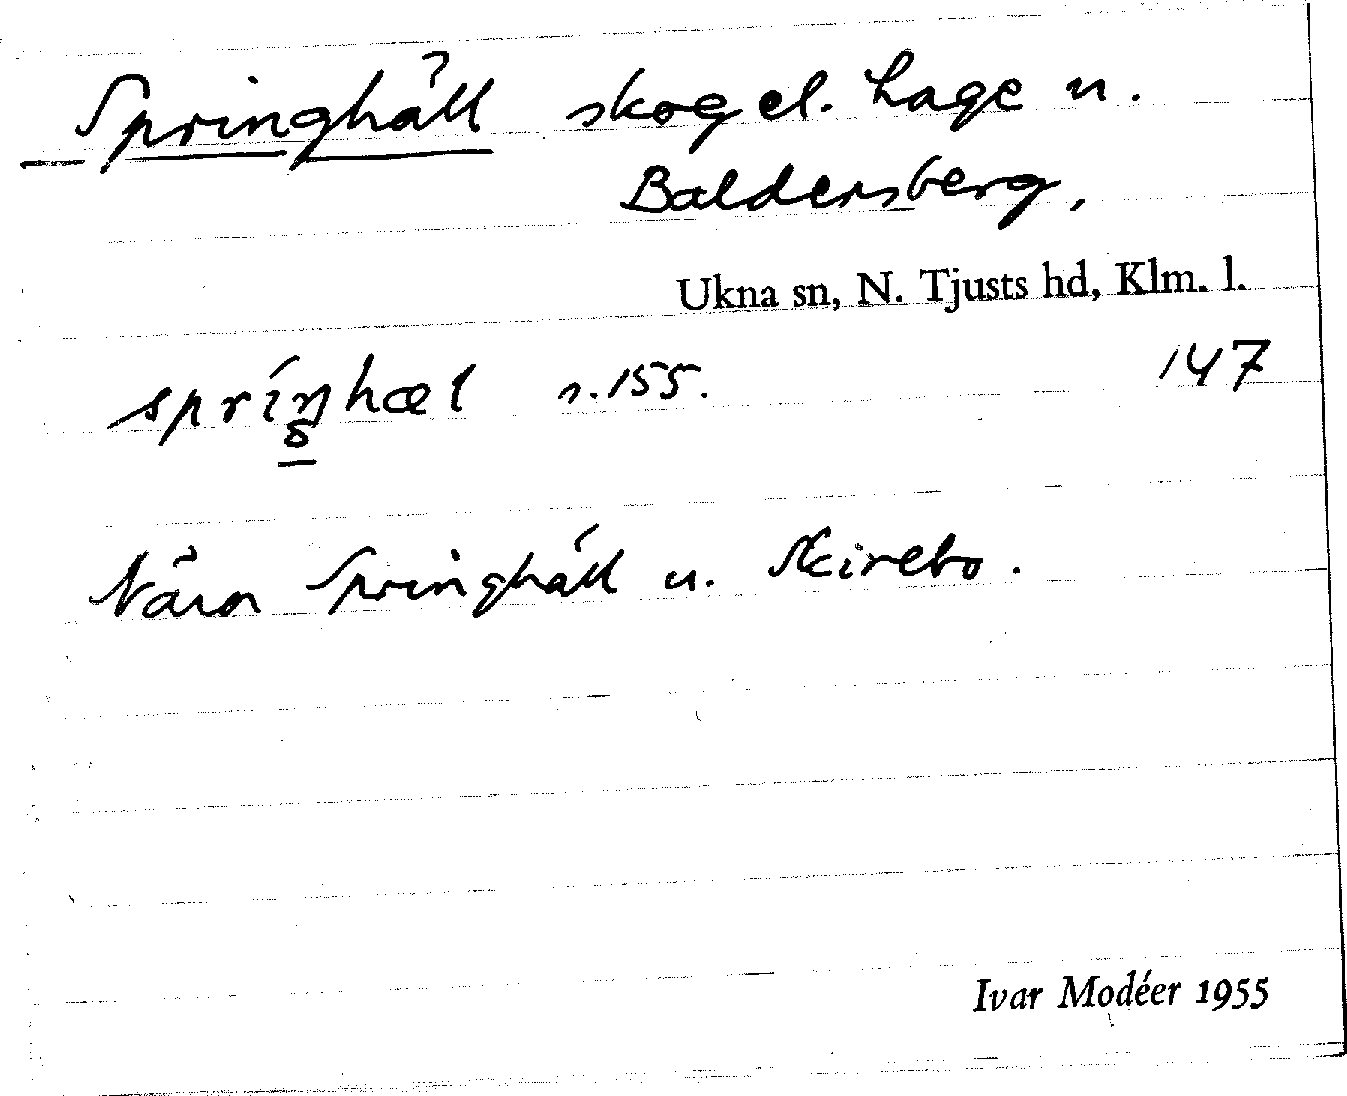 Springhäll skog el. hage u.
Baldersberg,
Ukna sn, N. Tjusts hd, Klm. l.
spríŋhæl s.155. 147
Nära Springhäll u. Skirebo.
Ivar Modéer 1955